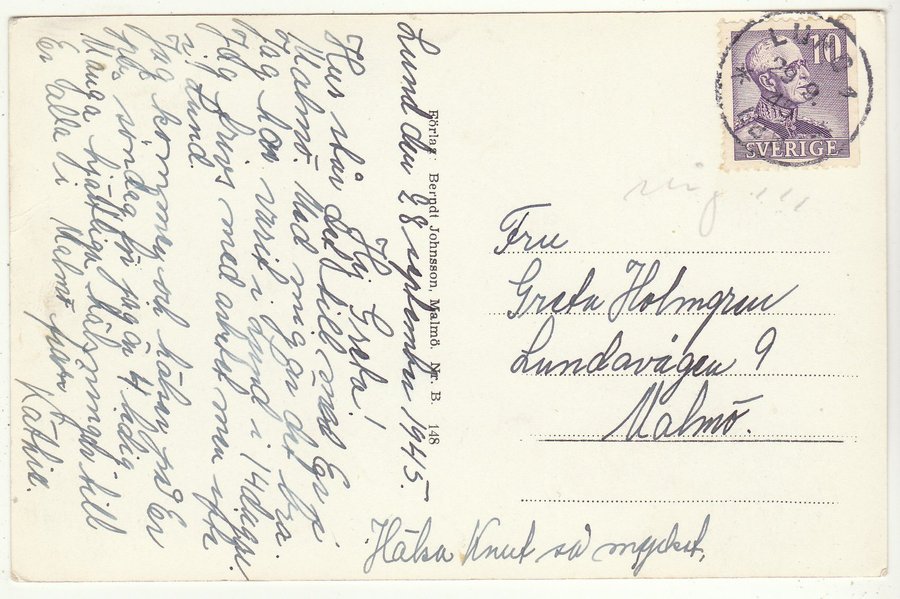 Lund den 28 september 1945.
Hej Greta!
Hur står det till med Er i
Malmö. Med mig är det bra.
Jag har varit i Lund i 14 dagar.
Jag trivs med arbetet men
i Lund.
Jag kommer och hälsar på Er
på söndag för jag är ledig
Många hjärtliga hälsningar till
Er alla i Malmö från
Hälsa Knut så mycket.
Förlag: Berndt Johnsson, Malmö. Nr. B. 148
10
SVERIGE
LUND 1
Fru
Greta Holmgren
Lundavägen 9
Malmö.